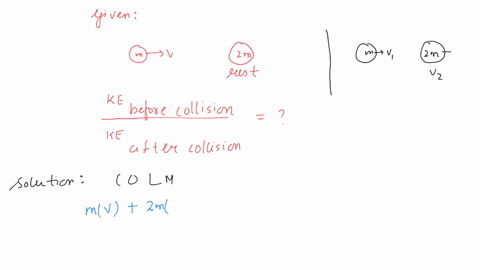 given:
m → v 2m
rest
m → v₁ 2m –
v₂
KE before collision
KE after collision
= ?
Solution: COLM
m(v) + 2m(